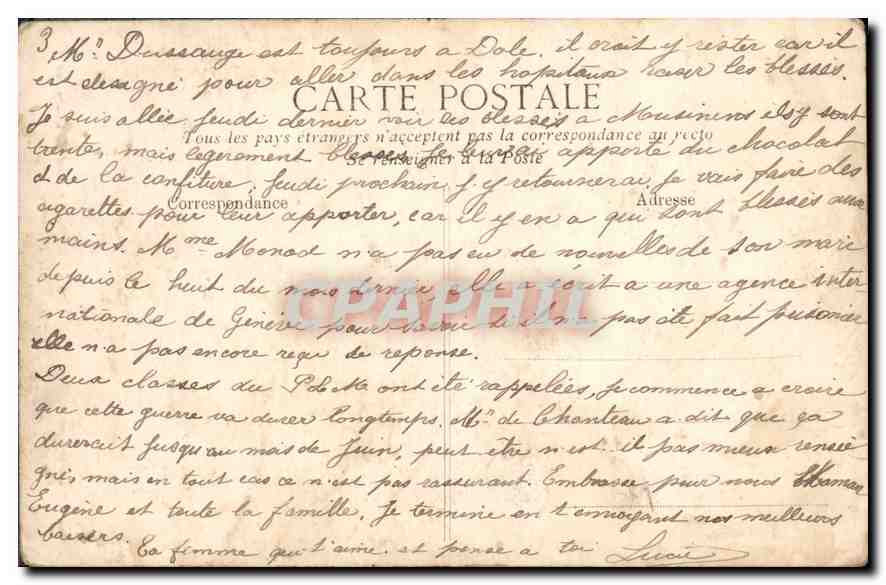 3
Mr Dussauge est toujours a Dole. il croit y rester car il
est designé pour aller dans les hopitaux raser les blessés.
CARTE POSTALE
Je suis allée jeudi dernier voir les blessés a ils y sont
Tous les pays étrangers n'acceptent pas la correspondance au recto
trente, mais légerement blesses. Je leur ai apporté du chocolat
Se renseigner à la Poste
et de la confiture, jeudi prochain j'y retournerai, je vais faire des
Correspondance Adresse
cigarettes pour leur apporter, car il y en a qui sont blessés aux
mains. Mme Monod n'a pas eu de nouvelles de son mari
depuis le huit du mois dernier elle a écrit a une agence inter-
CPAPHIL
nationale de Genève pour savoir si il n'a pas été fait prisonier
elle n'a pas encore reçu de reponse.
Deux classes du PLM ont été rappelées, je commence a croire
que cette guerre va durer longtemps. Mr de Chanteau a dit que ça
durerait jusqu'au mois de Juin, peut etre n'est il pas mieux rensei-
gné, mais en tout cas ce n'est pas rassurant. Embrasse pour nous Maman
Eugène et toute la famille. Je termine en t'envoyant nos meilleurs
baisers. Ta femme qui t'aime et pense a toi Lucie